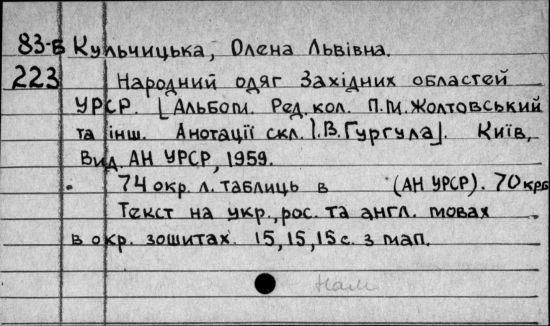 83-Б Кульчицька, Олена Львівна.
223 Народний одяг Західних областей
УРСР. [Альбом. Ред. кол. П.М. Жолтовський
та інш. Анотації скл. І.В. Гургула]. Київ,
Вид. АН УРСР, 1959.
74 окр. л. таблиць в (АН УРСР). 70 крб
Текст на укр., рос. та англ. мовах
в окр. зошитах. 15, 15, 15 с. з мап.